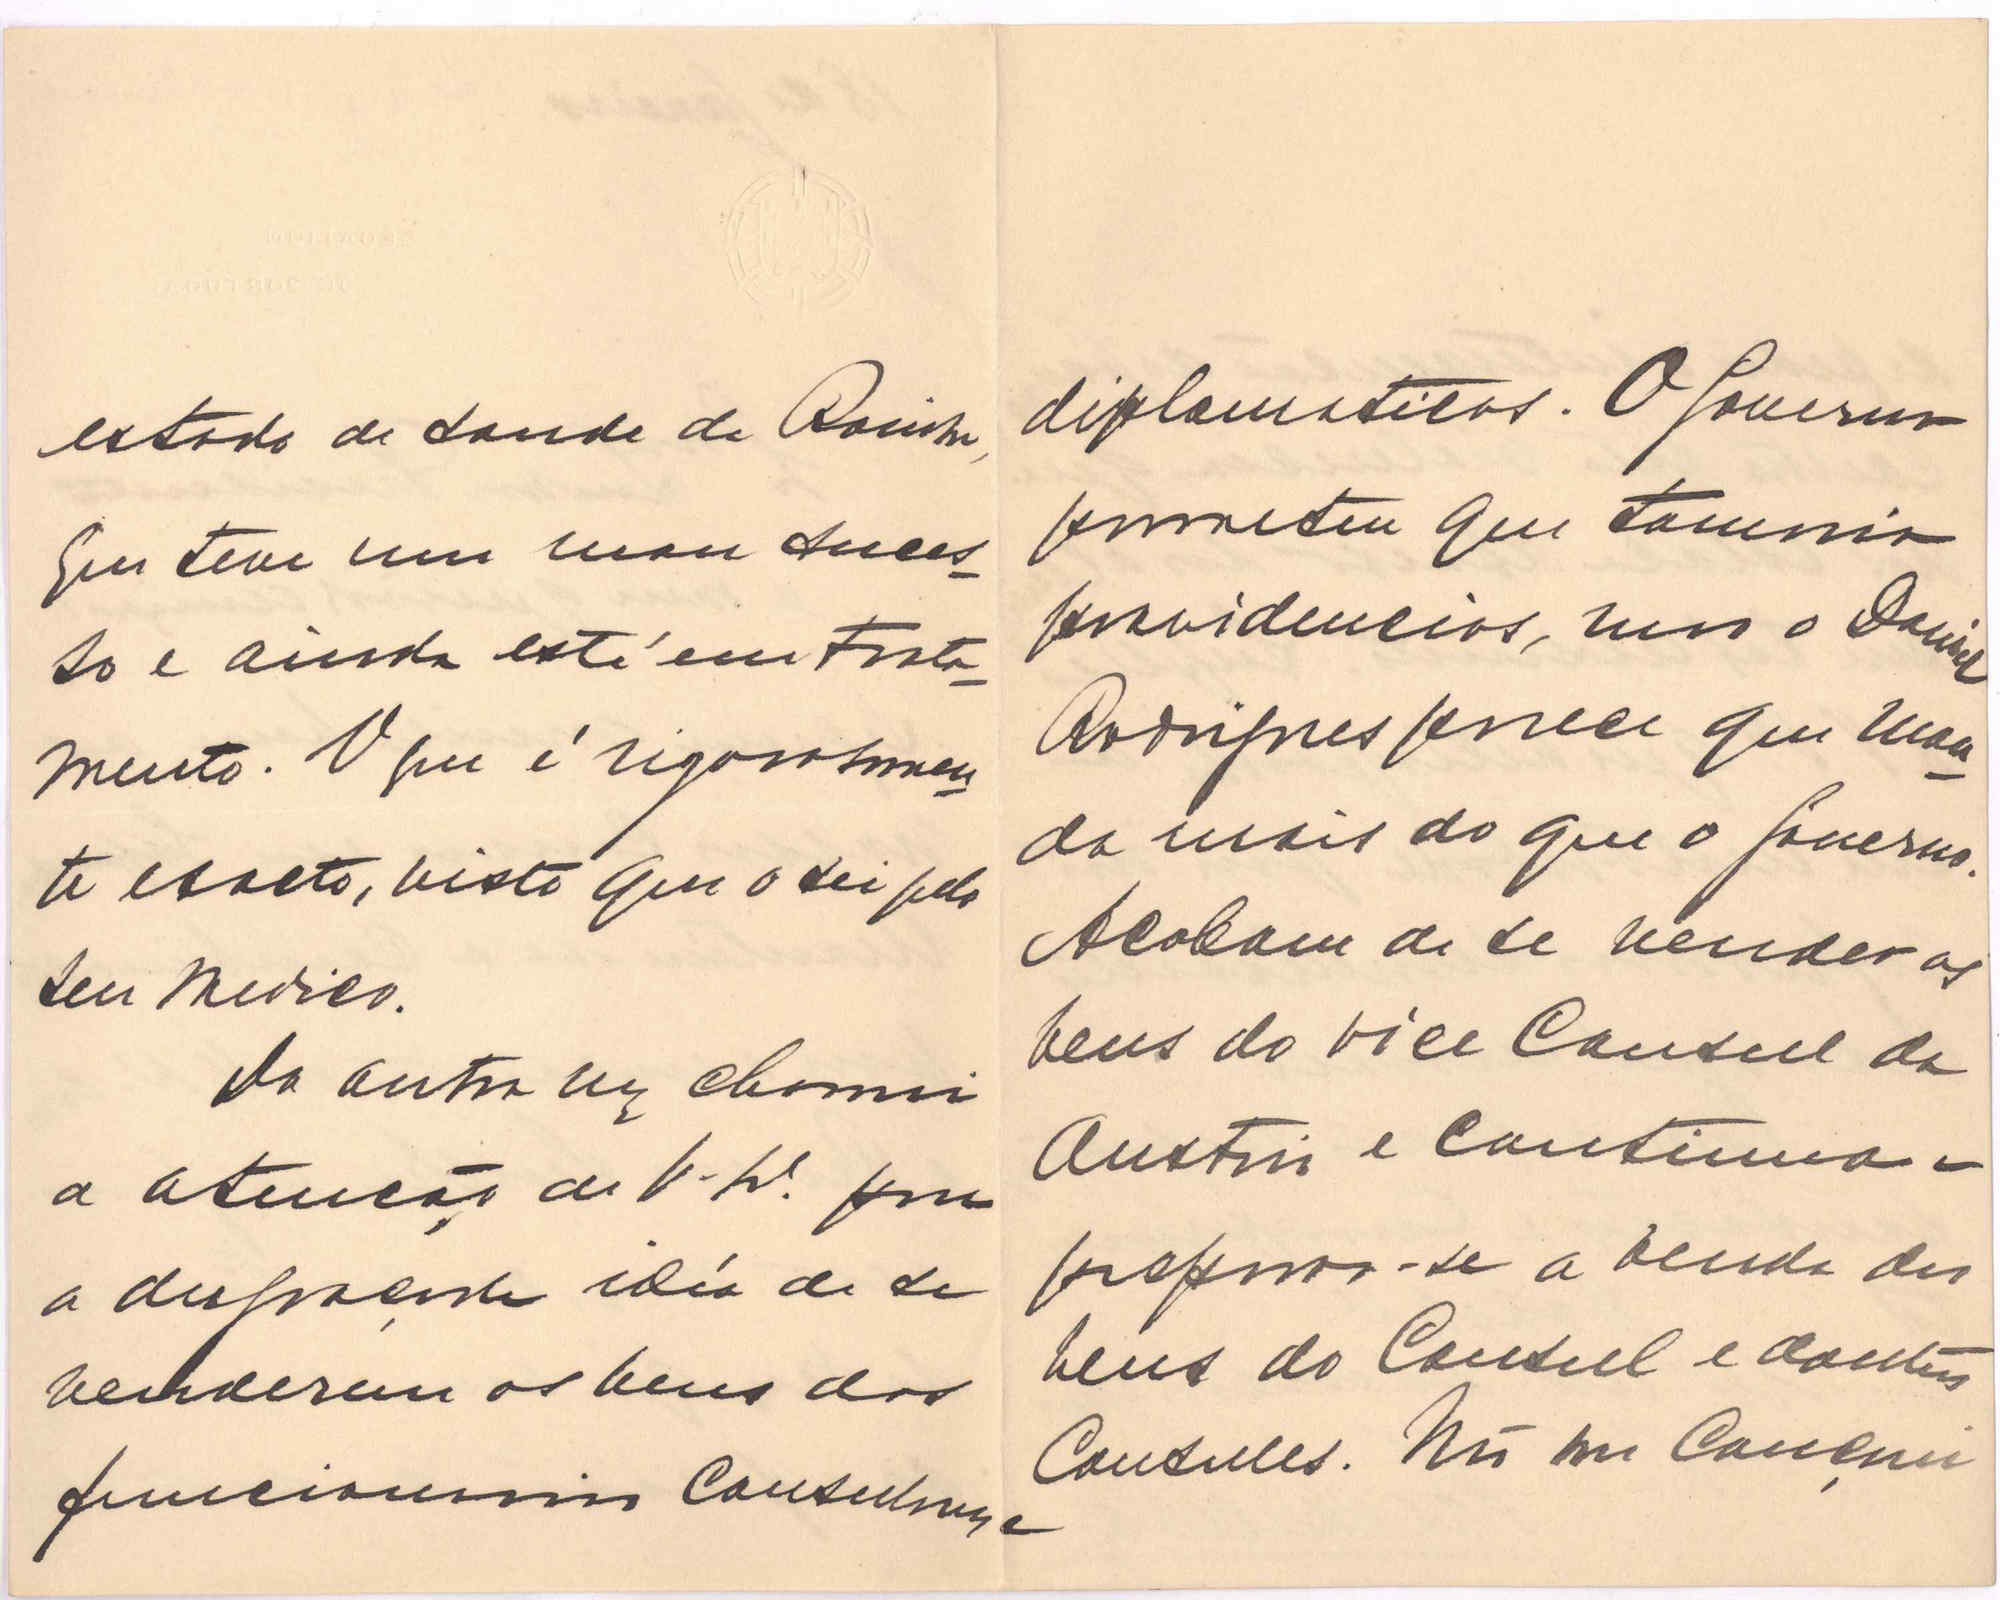 estado de saude da Rainha,
que teve um mau suces-
so e ainda está em trata-
mento. O que é rigorosamen-
te exacto, visto que o sei pelo
seu Medico.
Da outra vez chamei
a atenção de V. para
a desgraçada idéa de se
venderem os bens dos
funcionarios Consulares e
diplomaticos. O Governo
prometeu que tomaria
providencias, mas o Daniel
Rodrigues parece que man-
da mais do que o Governo.
Acabam de se vender os
bens do vice Consul da
Austria e continua a
preparar-se a venda dos
bens do Consul e doutros
Consules. Não me cancei